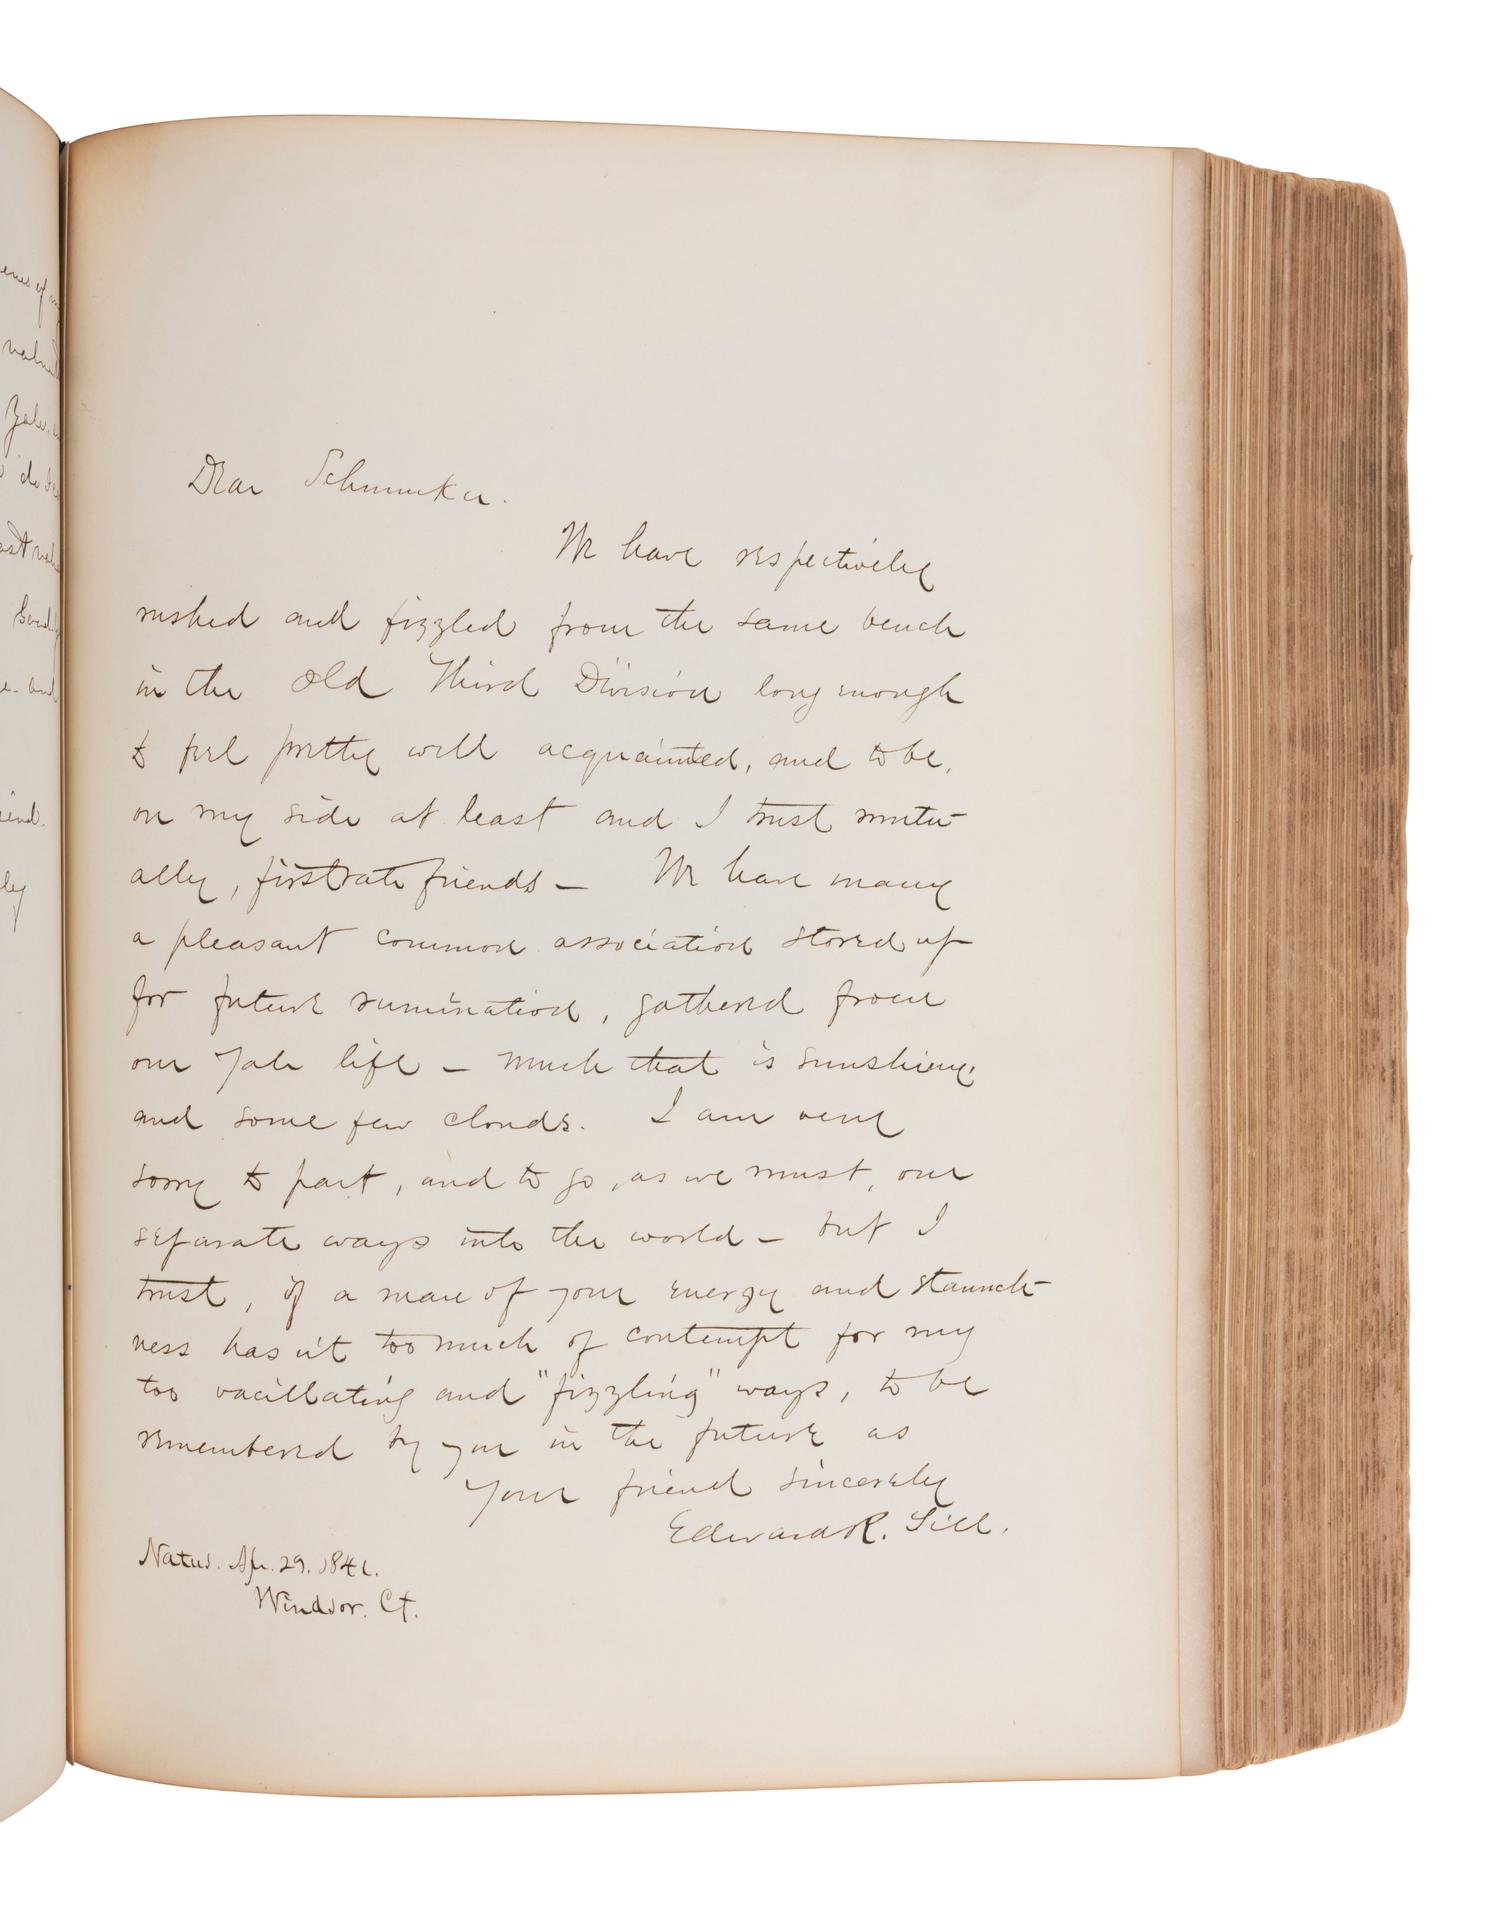 Dear Schmucker.
We have respectively
rushed and fizzled from the same bench
in the Old Third Division long enough
to feel pretty well acquainted, and to be,
on my side at least and I trust mutu-
ally, firstrate friends — We have many
a pleasant common association stored up
for future rumination, gathered from
our Yale life — much that is sunshiny,
and some few clouds. I am very
sorry to part, and to go, as we must, our
separate ways into the world — but I
trust, if a man of your energy and staunch-
ness has n't too much of contempt for my
too vacillating and "fizzling" ways, to be
remembered by you in the future as
Your friend sincerely
Edward R. Sill.
Natus. Apr. 29. 1841.
Windsor. Ct.